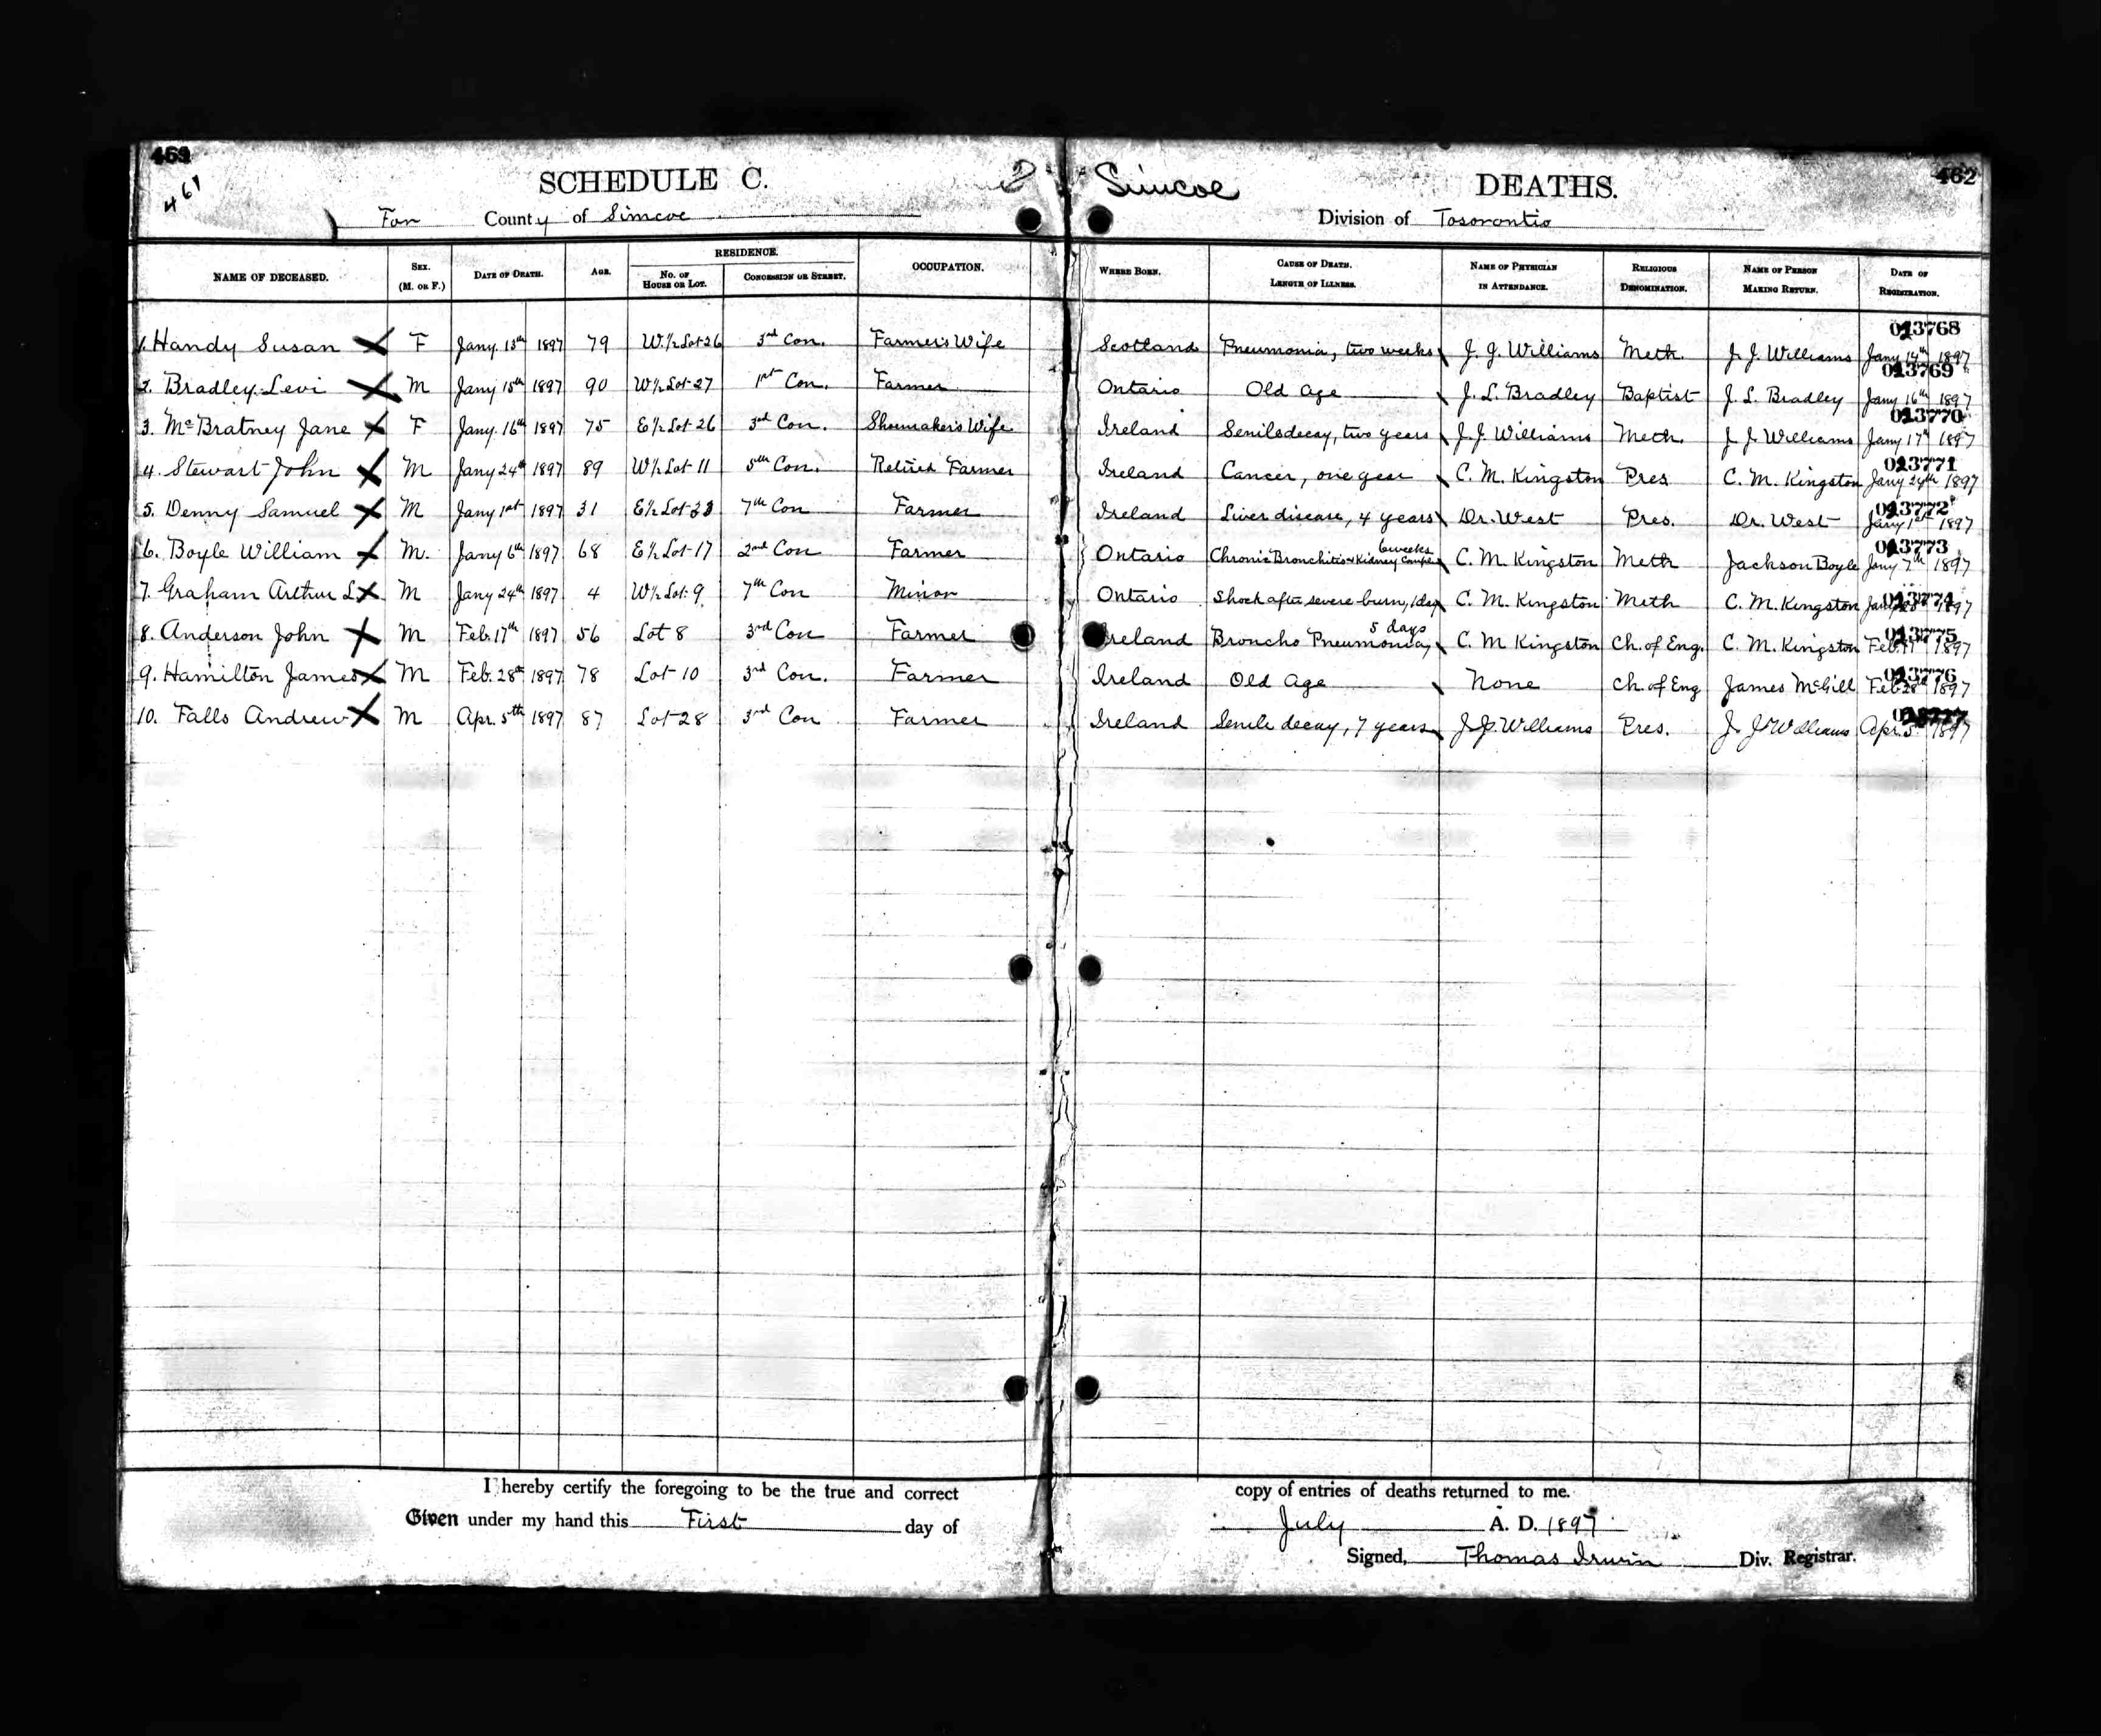 461
SCHEDULE C. 2 Simcoe DEATHS. 462
For County of Simcoe Division of Tosorontio
NAME OF DECEASED. SEX. (M. OR F.) DATE OF DEATH. AGE. RESIDENCE. No. OF HOUSE OR LOT. CONCESSION OR STREET. OCCUPATION. WHERE BORN. CAUSE OF DEATH. LENGTH OF ILLNESS. NAME OF PHYSICIAN IN ATTENDANCE. RELIGIOUS DENOMINATION. NAME OF PERSON MAKING RETURN. DATE OF REGISTRATION.
013768
1. Handy Susan X F Jany. 13th 1897 79 W.½ Lot 26 3rd Con. Farmer's Wife Scotland Pneumonia, two weeks J. J. Williams Meth. J. J. Williams Jany 14th 1897
013769
2. Bradley Levi X M Jany 15th 1897 90 W½ Lot 27 1st Con. Farmer Ontario Old Age J. L. Bradley Baptist J. L. Bradley Jany 16th 1897
013770
3. McBratney Jane X F Jany. 16th 1897 75 E½ Lot 26 3rd Con. Shoemaker's Wife Ireland Senile decay, two years J. J. Williams Meth. J. J. Williams Jany 17th 1897
013771
4. Stewart John X M Jany 24th 1897 89 W½ Lot 11 5th Con. Retired Farmer Ireland Cancer, one year C. M. Kingston Pres C. M. Kingston Jany 24th 1897
013772
5. Denny Samuel X M Jany 1st 1897 31 E½ Lot 23 7th Con Farmer Ireland Liver disease, 4 years Dr. West Pres. Dr. West Jany 1st 1897
013773
6. Boyle William X M. Jany 6th 1897 68 E½ Lot 17 2nd Con Farmer Ontario Chronic Bronchitis & Kidney 6 weeks C. M. Kingston Meth Jackson Boyle Jany 7th 1897
013774
7. Graham Arthur L X M Jany 24th 1897 4 W½ Lot 9 7th Con Minor Ontario Shock after severe burn, 1 day C. M. Kingston Meth C. M. Kingston 1897
013775
8. Anderson John X M Feb. 17th 1897 56 Lot 8 3rd Con Farmer Ireland Broncho Pneumonia, 5 days C. M Kingston Ch. of Eng. C. M. Kingston Feb. 1897
013776
9. Hamilton James X M Feb. 28th 1897 78 Lot 10 3rd Con. Farmer Ireland Old Age None Ch. of Eng James McGill Feb 28th 1897
10. Falls Andrew X M Apr. 5th 1897 87 Lot 28 3rd Con Farmer Ireland Senile decay, 7 years J. J. Williams Pres. J. J. Williams Apr. 5th 1897
I hereby certify the foregoing to be the true and correct copy of entries of deaths returned to me.
Given under my hand this First day of July A. D. 1897
Signed, Thomas Irwin Div. Registrar.